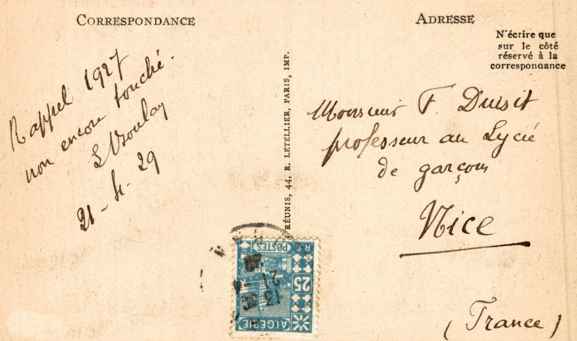 CORRESPONDANCE
ADRESSE
N'écrire que
sur le côté
réservé à la
correspondance
Rappel 1927
non encore touché.
21-4-29
RÉUNIS, 44, R. LETELLIER, PARIS, IMP.
Monsieur F. Duisit
professeur au Lycée
de garçons
Nice
(France)
POSTES
25
ALGERIE